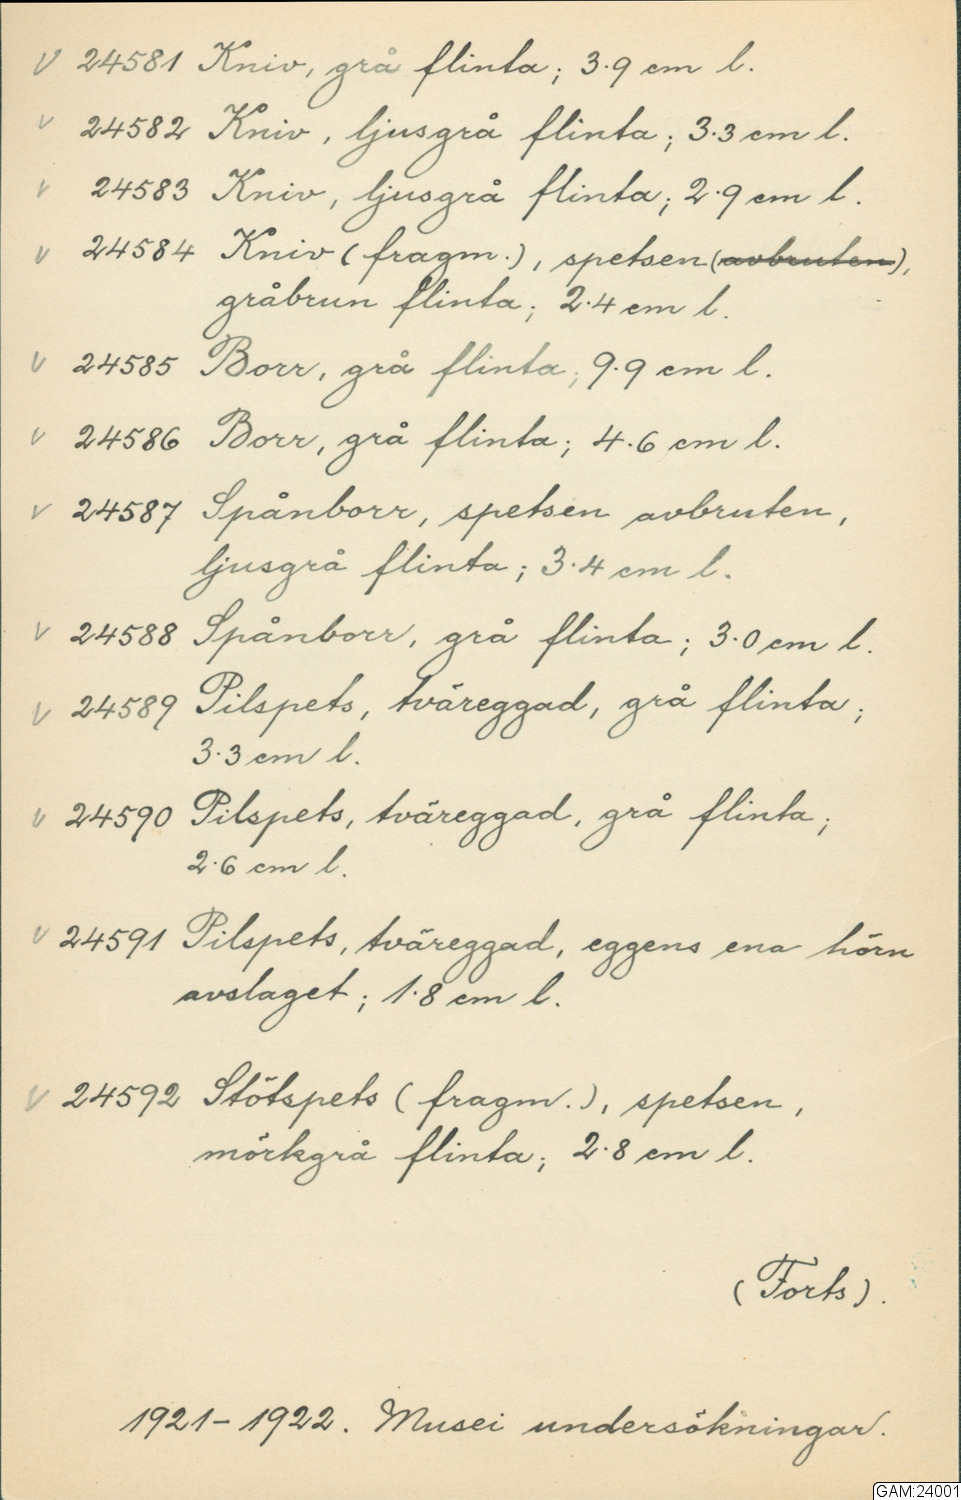 V 24581 Kniv, grå flinta; 3.9 cm l.
V 24582 Kniv, ljusgrå flinta; 3.3 cm l.
V 24583 Kniv, ljusgrå flinta; 2.9 cm l.
V 24584 Kniv (fragm.), spetsen (avbruten),
gråbrun flinta; 2.4 cm l.
V 24585 Borr, grå flinta; 9.9 cm l.
V 24586 Borr, grå flinta; 4.6 cm l.
V 24587 Spånborr, spetsen avbruten,
ljusgrå flinta; 3.4 cm l.
V 24588 Spånborr, grå flinta; 3.0 cm l.
V 24589 Pilspets, tväreggad, grå flinta;
3.3 cm l.
V 24590 Pilspets, tväreggad, grå flinta;
2.6 cm l.
V 24591 Pilspets, tväreggad, eggens ena hörn
avslaget; 1.8 cm l.
V 24592 Stötspets (fragm.), spetsen,
mörkgrå flinta; 2.8 cm l.
(Forts).
1921-1922. Musei undersökningar.
GAM:24001